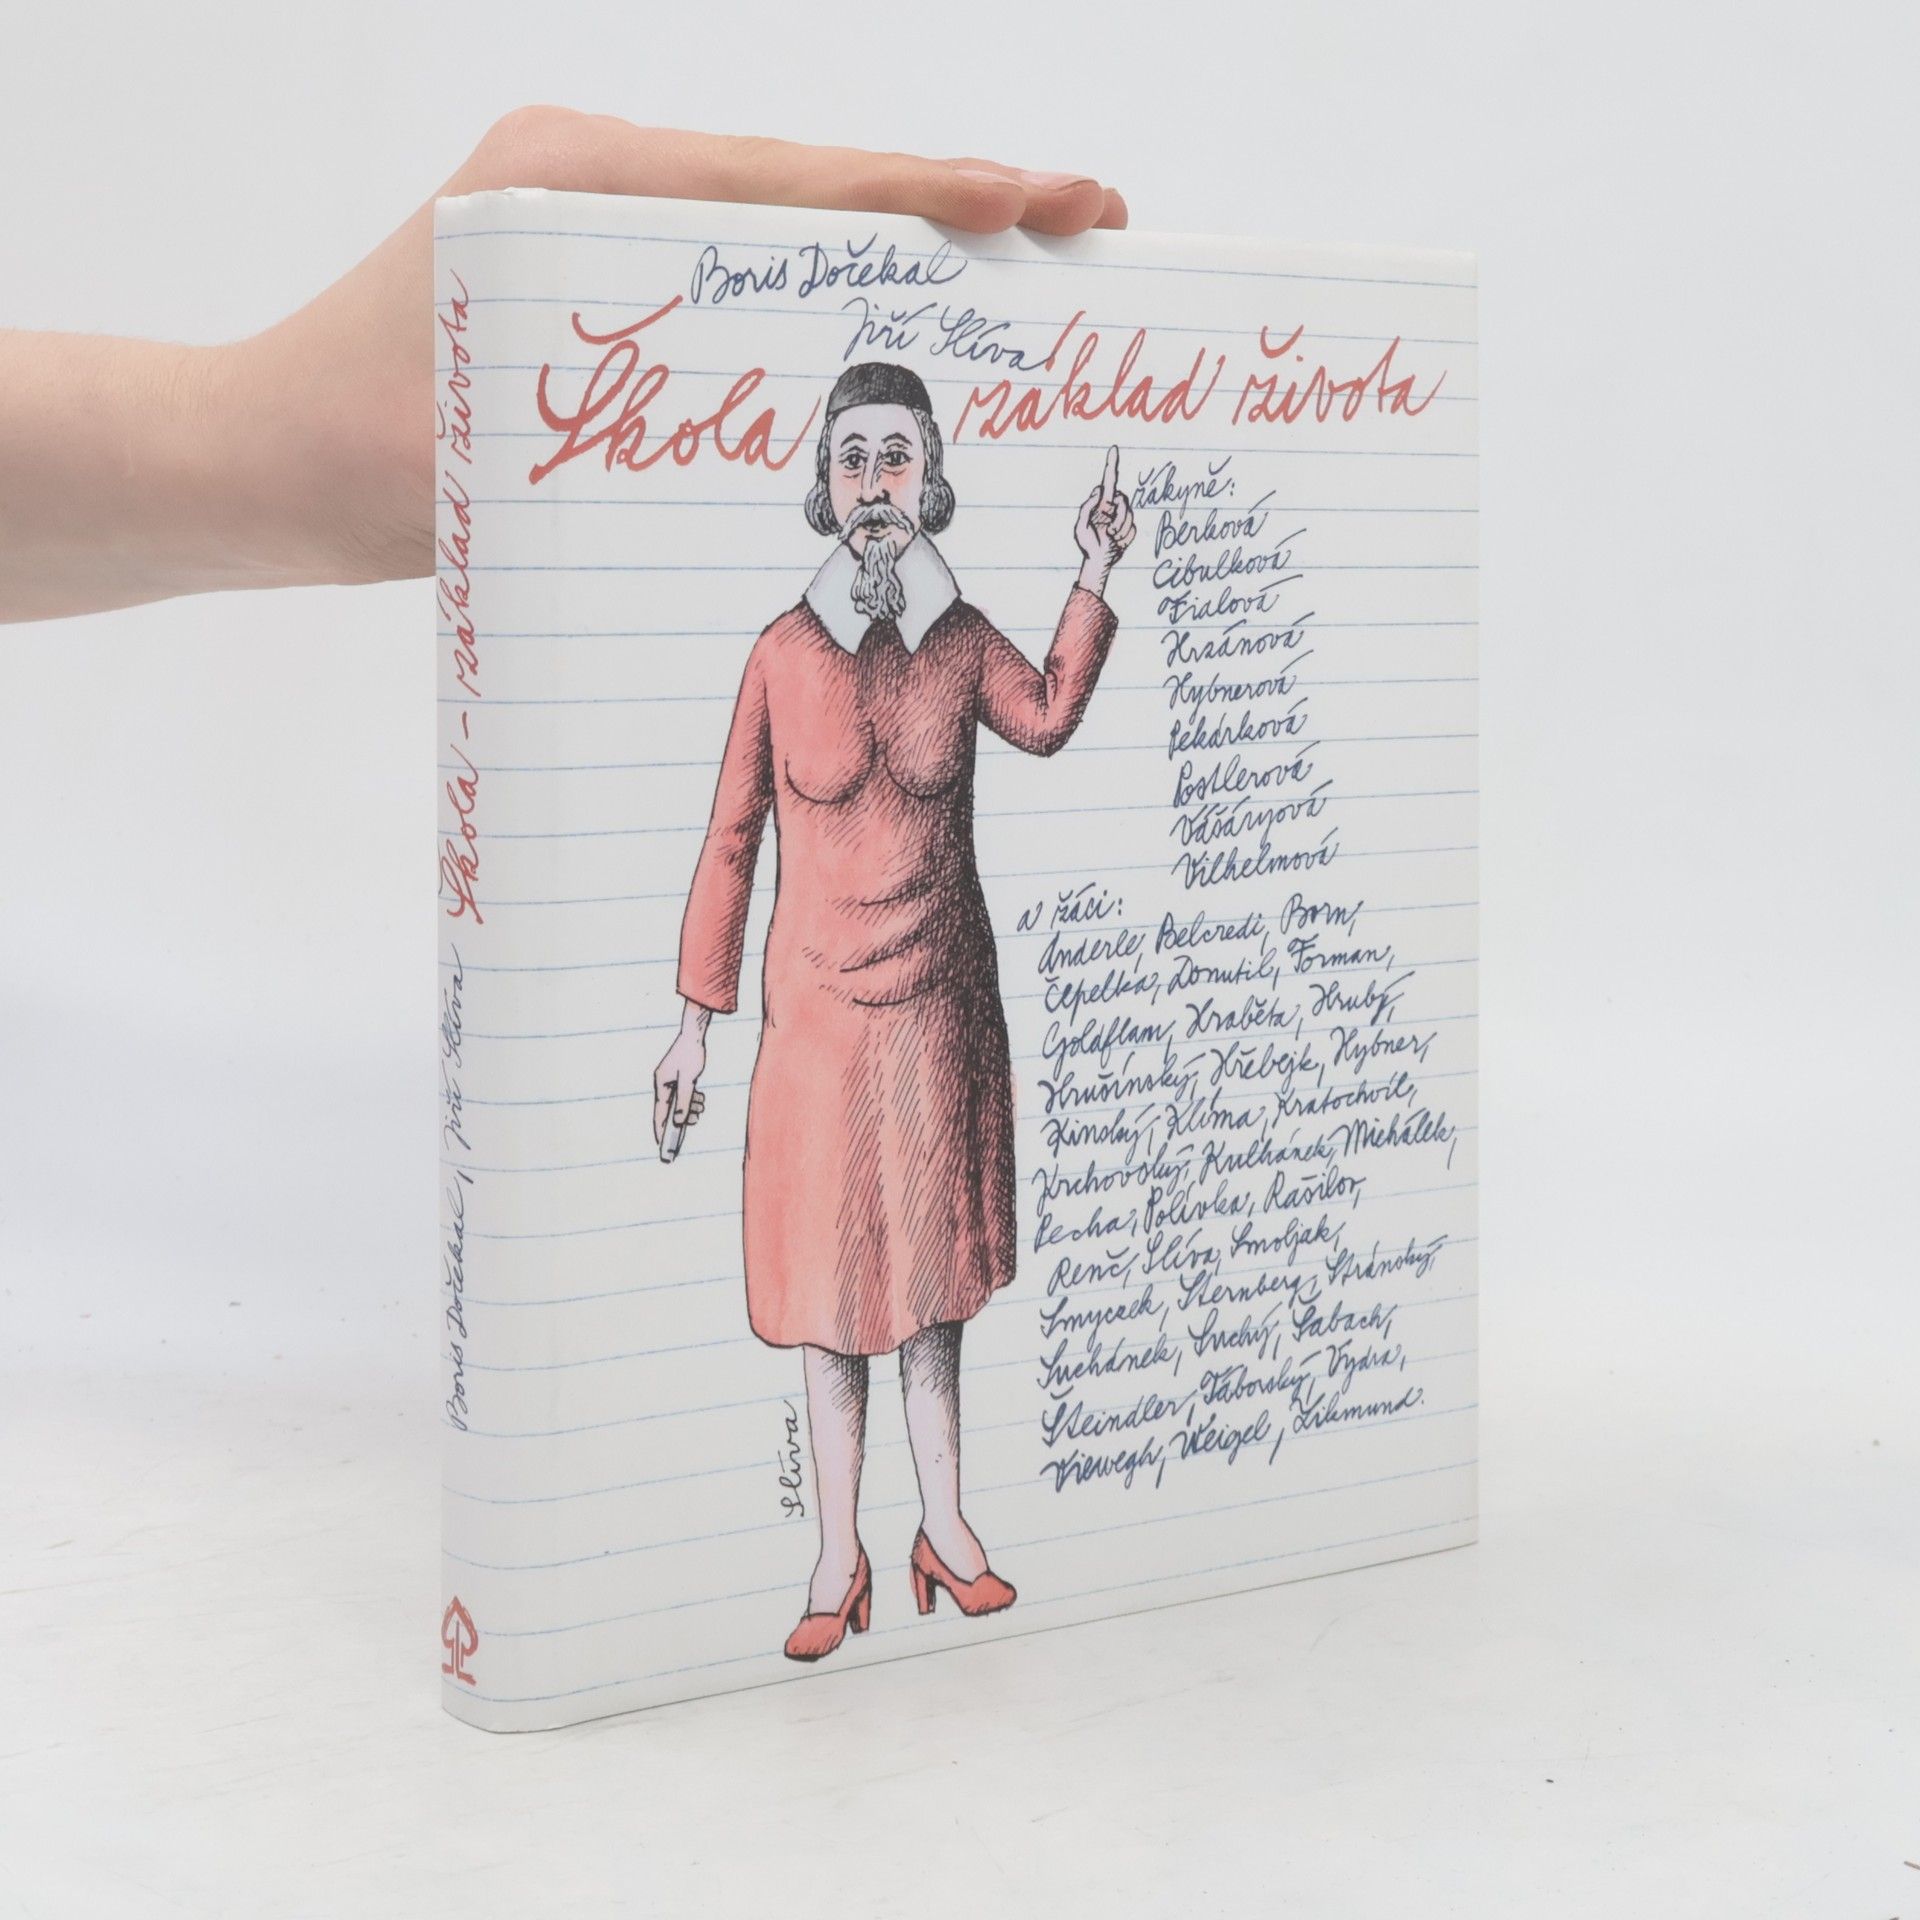 Boris Dočekal
Jiří Slíva
Škola základ života
žákyně:
Berková
Cibulková
Fialová
Hrzánová
Hybnerová
Pekárková
Postlerová
Vášáryová
Vilhelmová
a žáci:
Anderle, Belcredi, Born,
Čepelka, Donutil, Forman,
Goldflam, Hraběta, Hrubý,
Hrušínský, Hřebejk, Hybner,
Kinský, Klíma, Kratochvíl,
Krchovský, Kulhánek, Michálek,
Pecha, Polívka, Rašilov,
Renč, Slíva, Smoljak,
Smyczek, Sternberg, Stránský,
Suchánek, Suchý, Šabach,
Šteindler, Táborský, Vydra,
Viewegh, Weigel, Zikmund.
Slíva
Boris Dočekal, Jiří Slíva Škola - základ života